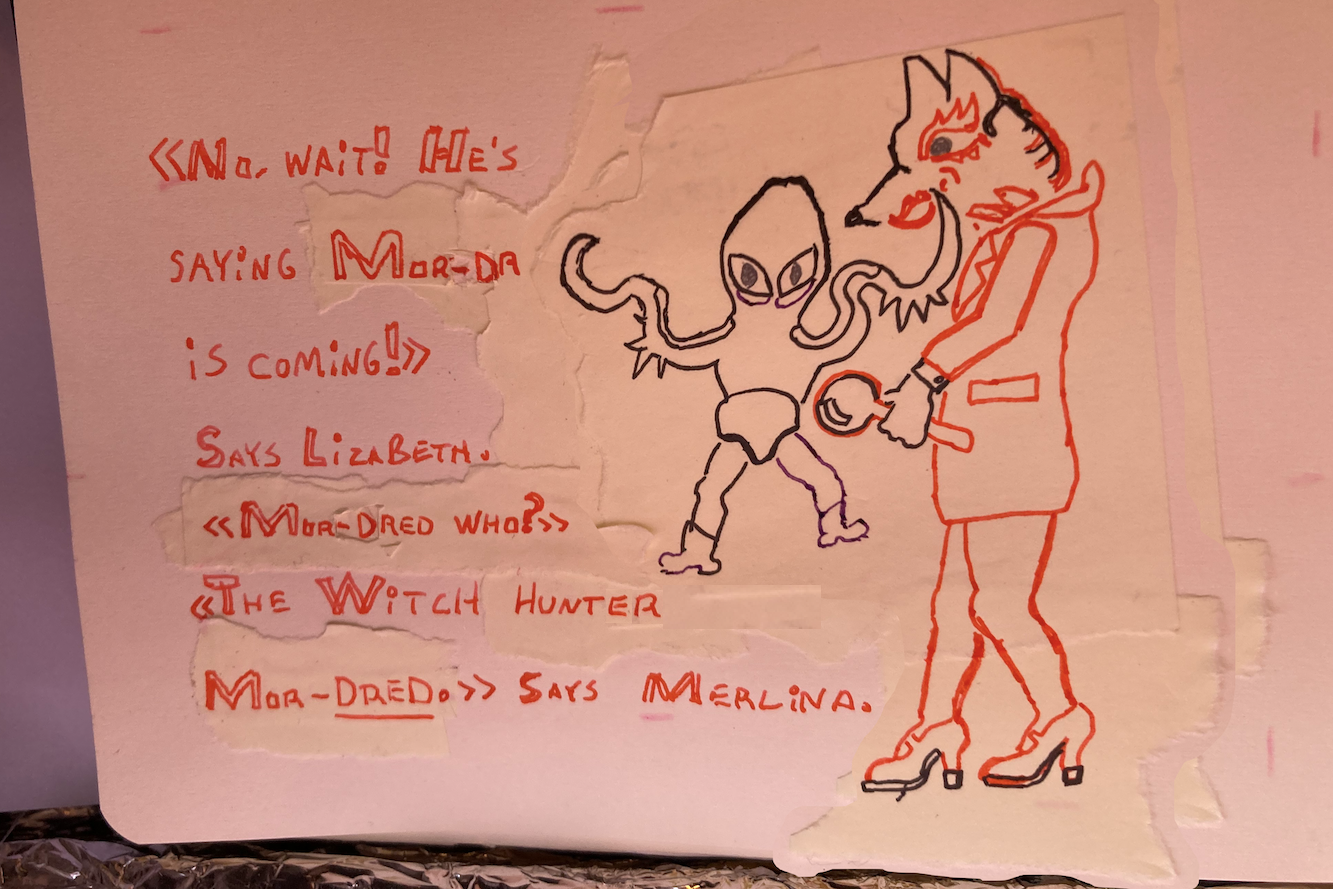 «No, wait! He's
saying Mor-da
is coming!»
Says Lizabeth.
«Mor-dred who?»
«The Witch Hunter
Mor-dred.» Says Merlina.